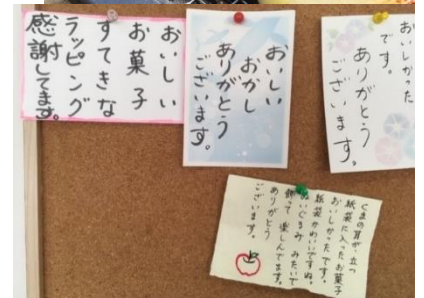 おいしい
お菓子
すてきな
ラッピング
感謝してます。
おいしい
おかし
ありがとう
ございます。
おいしかった
です。
ありがとう
ございます。
くまの耳が、立つ
紙袋に入ったお菓子
おいしかったです。
紙袋かわいいですね。
ぬいぐるみみたいで
飾って楽しんでます。
ありがとう
ございます。